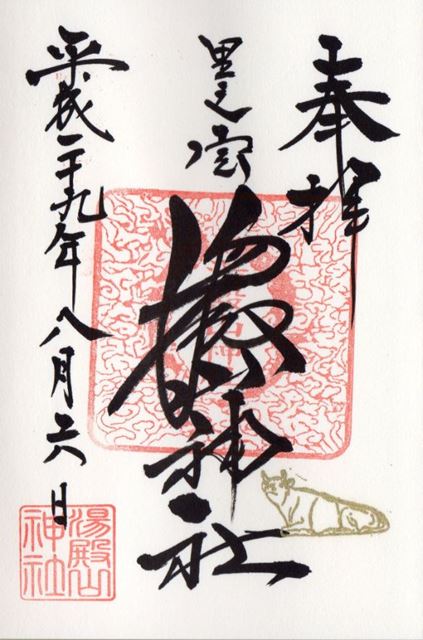 奉拝
里之宮
湯殿山神社
平成二十九年八月六日
湯殿山
神社